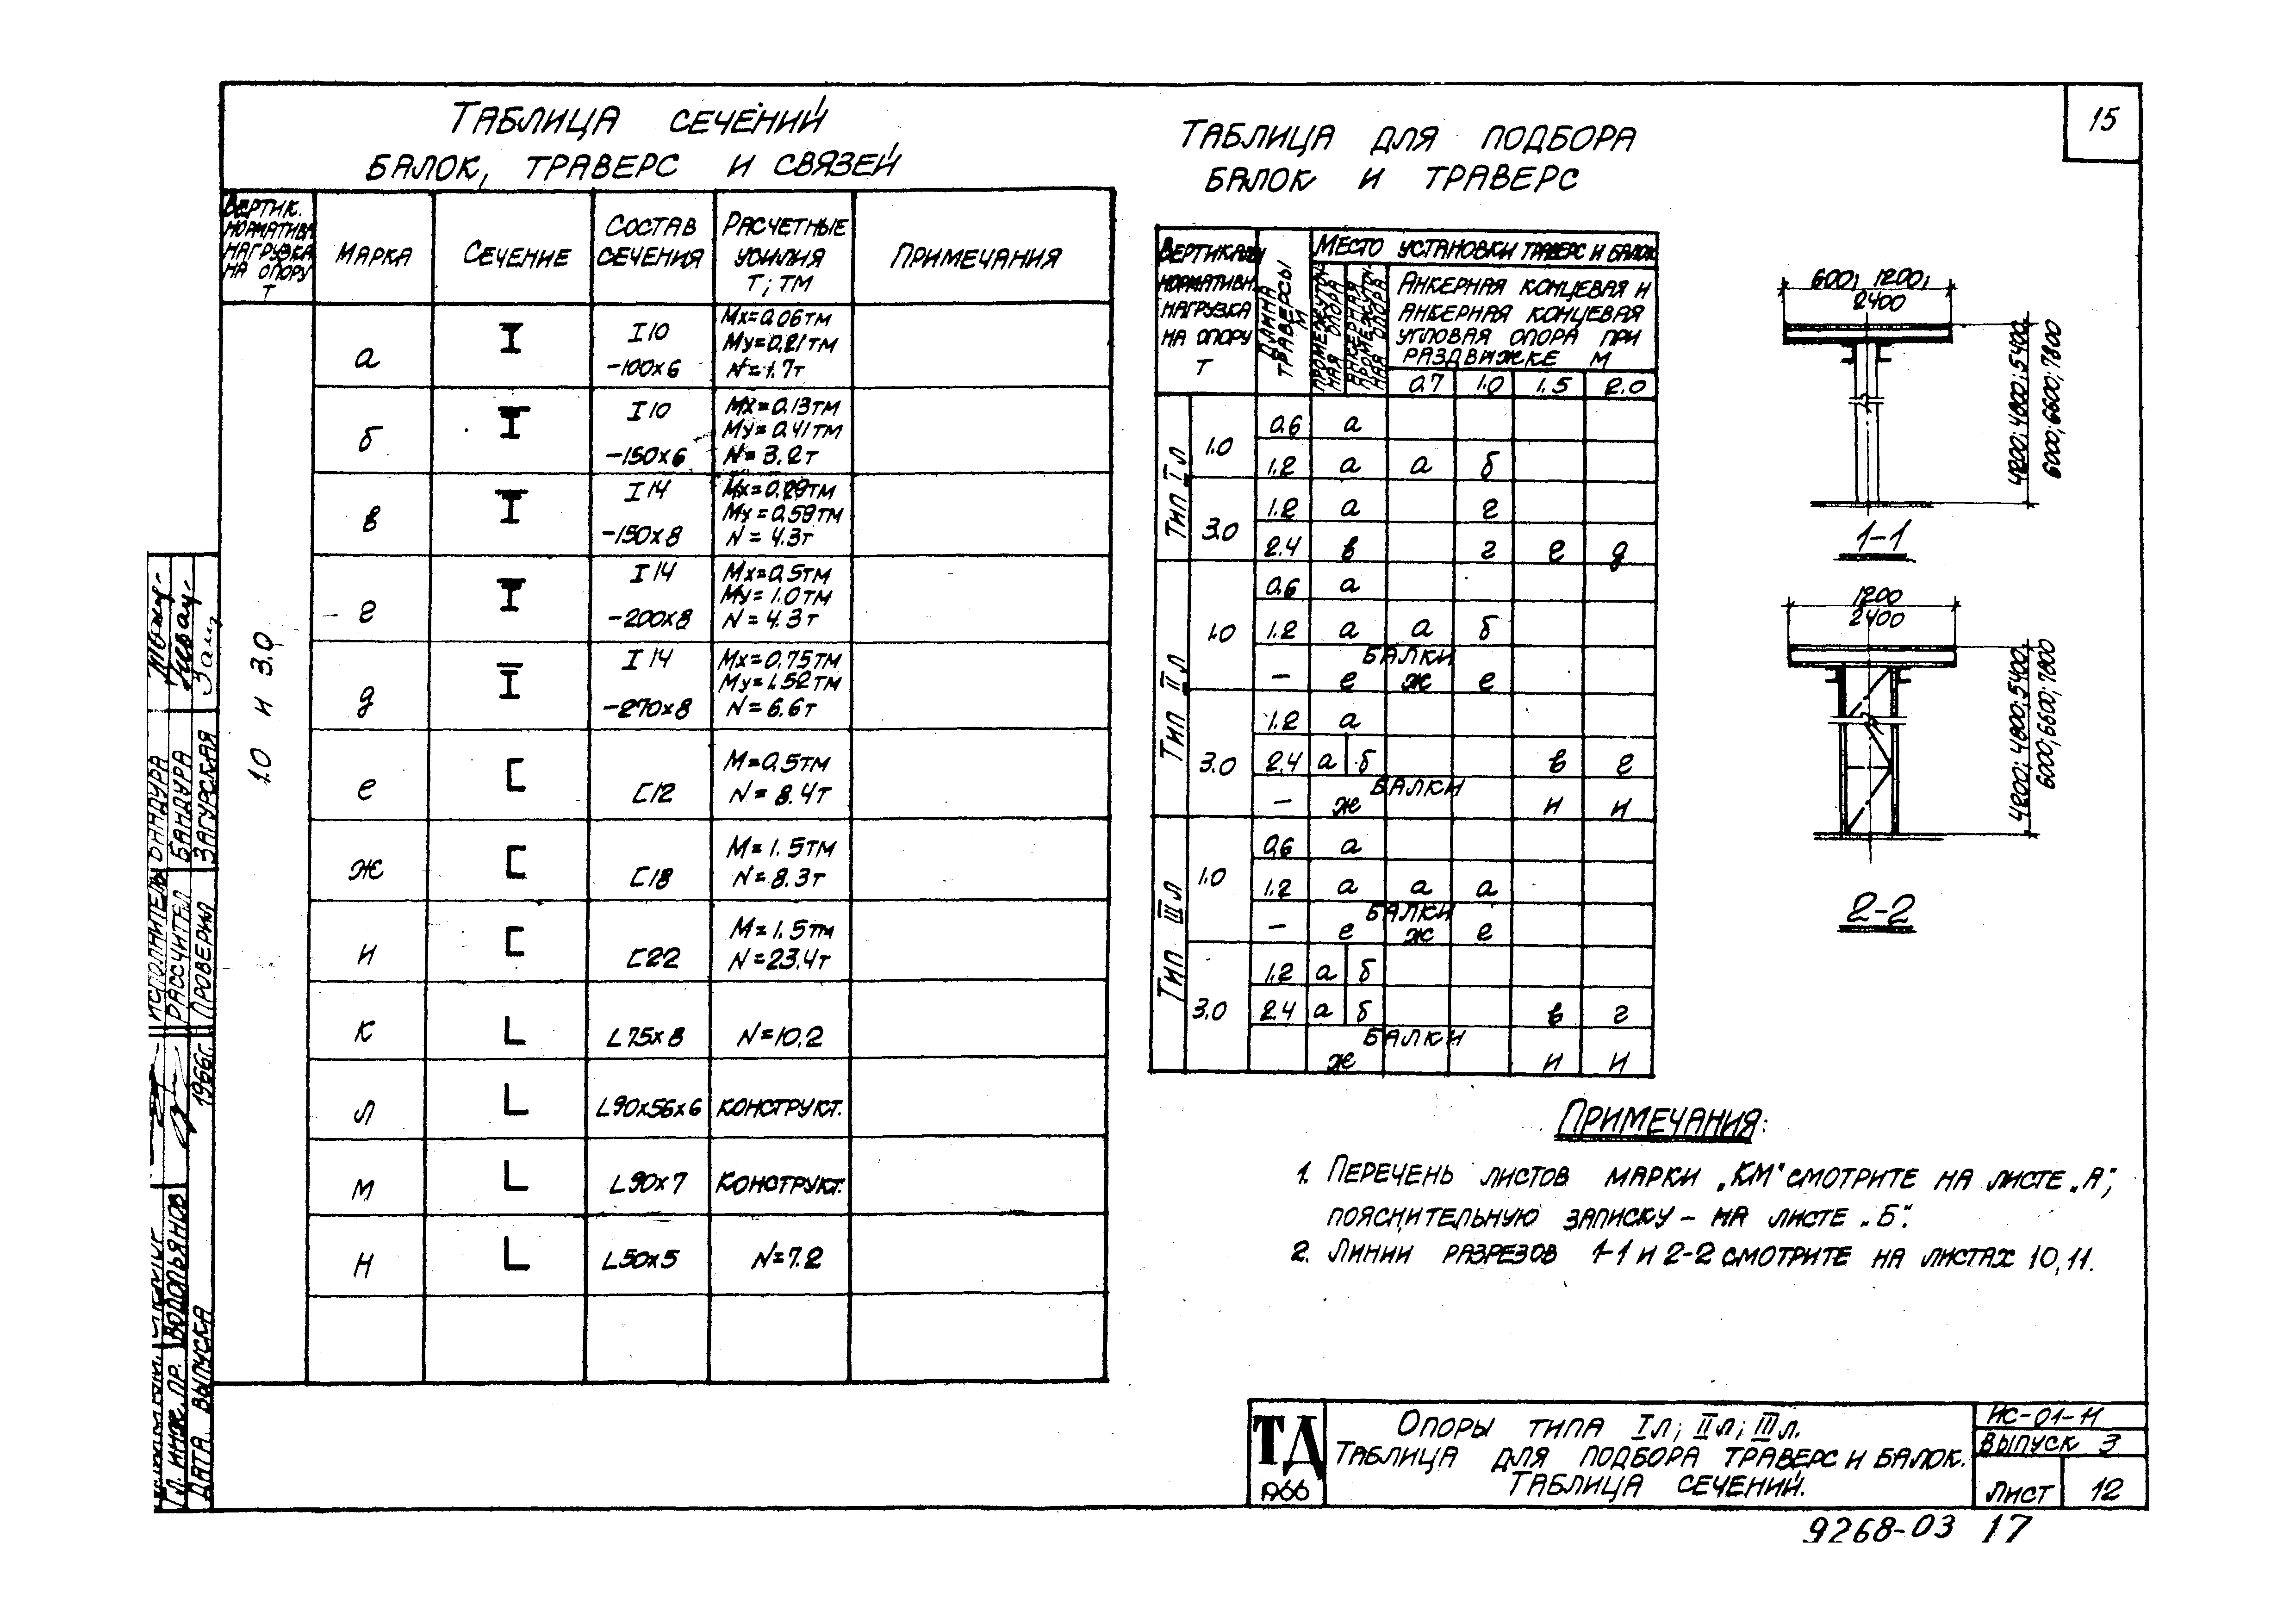 15
ТАБЛИЦА СЕЧЕНИЙ
БАЛОК, ТРАВЕРС И СВЯЗЕЙ
ВЕРТИК.
НОРМАТИВН
НАГРУЗКА
НА ОПОРУ
Т
МАРКА
СЕЧЕНИЕ
СОСТАВ
СЕЧЕНИЯ
РАСЧЕТНЫЕ
УСИЛИЯ
Т; ТМ
ПРИМЕЧАНИЯ
1.0 И 3.0
а
I10
-100х6
Mx=0.06ТМ
My=0.21ТМ
N=1.7Т
б
I10
-150х6
Mx=0.13ТМ
My=0.41ТМ
N=3.2Т
в
I14
-150х8
Mx=0.29ТМ
My=0.59ТМ
N=4.3Т
г
I14
-200х8
Mx=0.5ТМ
My=1.0ТМ
N=4.3Т
д
I14
-270х8
Mx=0.75ТМ
My=1.52ТМ
N=6.6Т
е
С12
M=0.5ТМ
N=8.4Т
ж
С18
M=1.5ТМ
N=8.3Т
и
С22
M=1.5ТМ
N=23.4Т
к
L75х8
N=10.2
л
L90х56х6
КОНСТРУКТ.
м
L90х7
КОНСТРУКТ.
н
L50х5
N=7.2
ТАБЛИЦА ДЛЯ ПОДБОРА
БАЛОК И ТРАВЕРС
ВЕРТИКАЛЬН
НОРМАТИВН.
НАГРУЗКА
НА ОПОРУ
Т
ДЛИНА
ТРАВЕРСЫ
М
МЕСТО УСТАНОВКИ ТРАВЕРС И БАЛОК
ПРОМЕЖУТОЧ-
НАЯ ОПОРА
АНКЕРНАЯ
ПРОМЕЖУТОЧ-
НАЯ ОПОРА
АНКЕРНАЯ КОНЦЕВАЯ И
АНКЕРНАЯ КОНЦЕВАЯ
УГЛОВАЯ ОПОРА ПРИ
РАЗДВИЖКЕ М
0.7 1.0 1.5 2.0
ТИП Iл
1.0
0.6 а
1.2 а а б
3.0
1.2 а г
2.4 в г г д
ТИП IIл
1.0
0.6 а
1.2 а а б
БАЛКИ
— е ж е
3.0
1.2 а
2.4 а б в г
БАЛКИ
— ж и и
ТИП IIIл
1.0
0.6 а
1.2 а а а
БАЛКИ
— е ж е
3.0
1.2 а б
2.4 а б в г
БАЛКИ
ж и и
600; 1200;
2400
4200; 4800; 5400
6000; 6600; 7800
1-1
1200
2400
4200; 4800; 5400
6000; 6600; 7800
2-2
ПРИМЕЧАНИЯ:
1. ПЕРЕЧЕНЬ ЛИСТОВ МАРКИ „КМ" СМОТРИТЕ НА ЛИСТЕ „А";
ПОЯСНИТЕЛЬНУЮ ЗАПИСКУ – НА ЛИСТЕ „Б".
2. ЛИНИИ РАЗРЕЗОВ 1-1 И 2-2 СМОТРИТЕ НА ЛИСТАХ 10, 11.
ТД
1966
ОПОРЫ ТИПА Iл; IIл; IIIл.
ТАБЛИЦА ДЛЯ ПОДБОРА ТРАВЕРС И БАЛОК.
ТАБЛИЦА СЕЧЕНИЙ.
ИС-01-11
ВЫПУСК 3
ЛИСТ 12
9268-03 17
ИСПОЛНИТЕЛЬ БАНДУРА
РАССЧИТАЛ БАНДУРА
ПРОВЕРИЛ ЗАГУРСКАЯ
ГЛ. ИНЖ. ПР. ВОДОПЬЯНОВ
ДАТА ВЫПУСКА 1966Г.